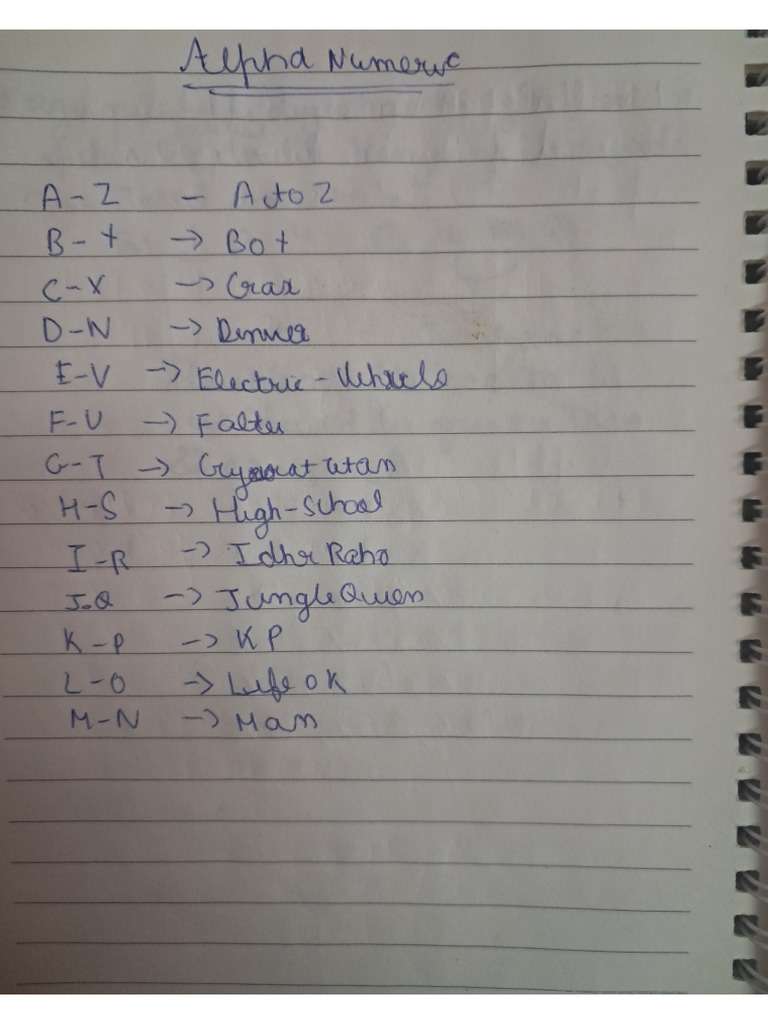 Alpha Numeric
A-Z - A to Z
B-Y → Boy
C-X → Crax
D-W →
E-V → Electric-Vehicle
F-U → Faltu
G-T →
H-S → High-School
I-R → Idhr Raho
J-Q → Jungle Queen
K-P → KP
L-O → Life OK
M-N → Man